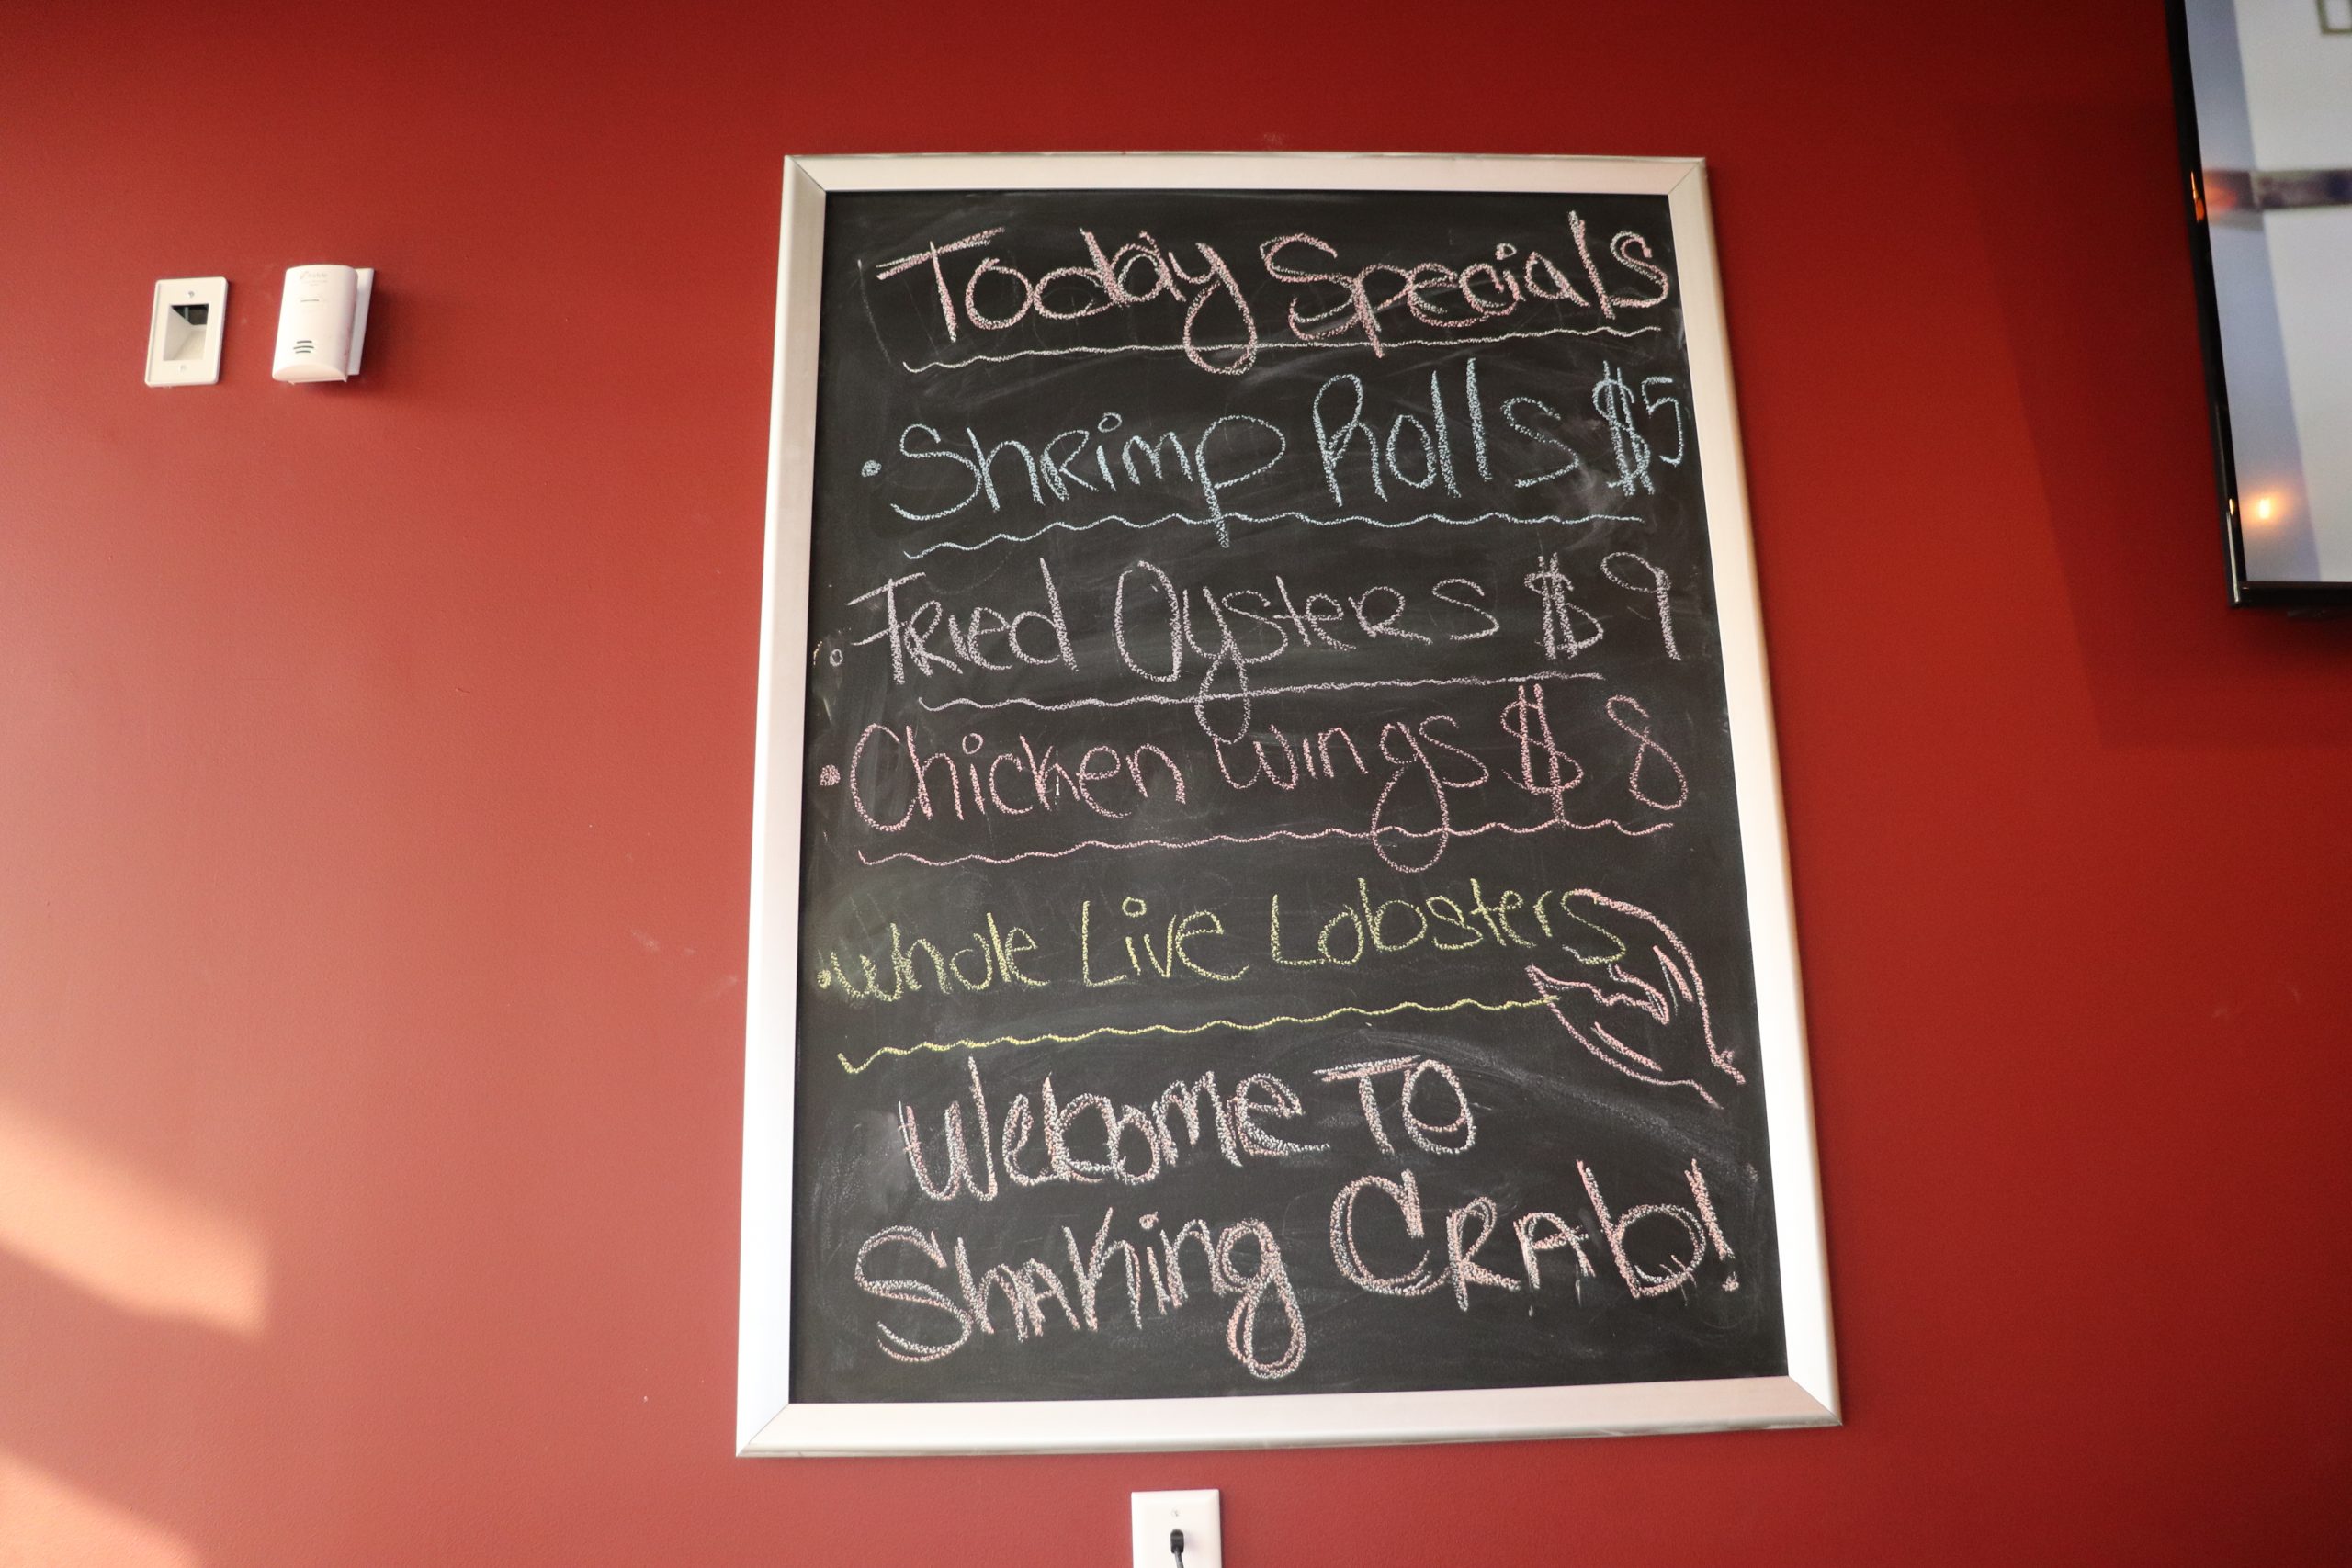 Today Specials
• Shrimp Rolls $5
• Fried Oysters $9
• Chicken wings $8
• whole Live Lobsters
Welcome To
Shaking Crab!